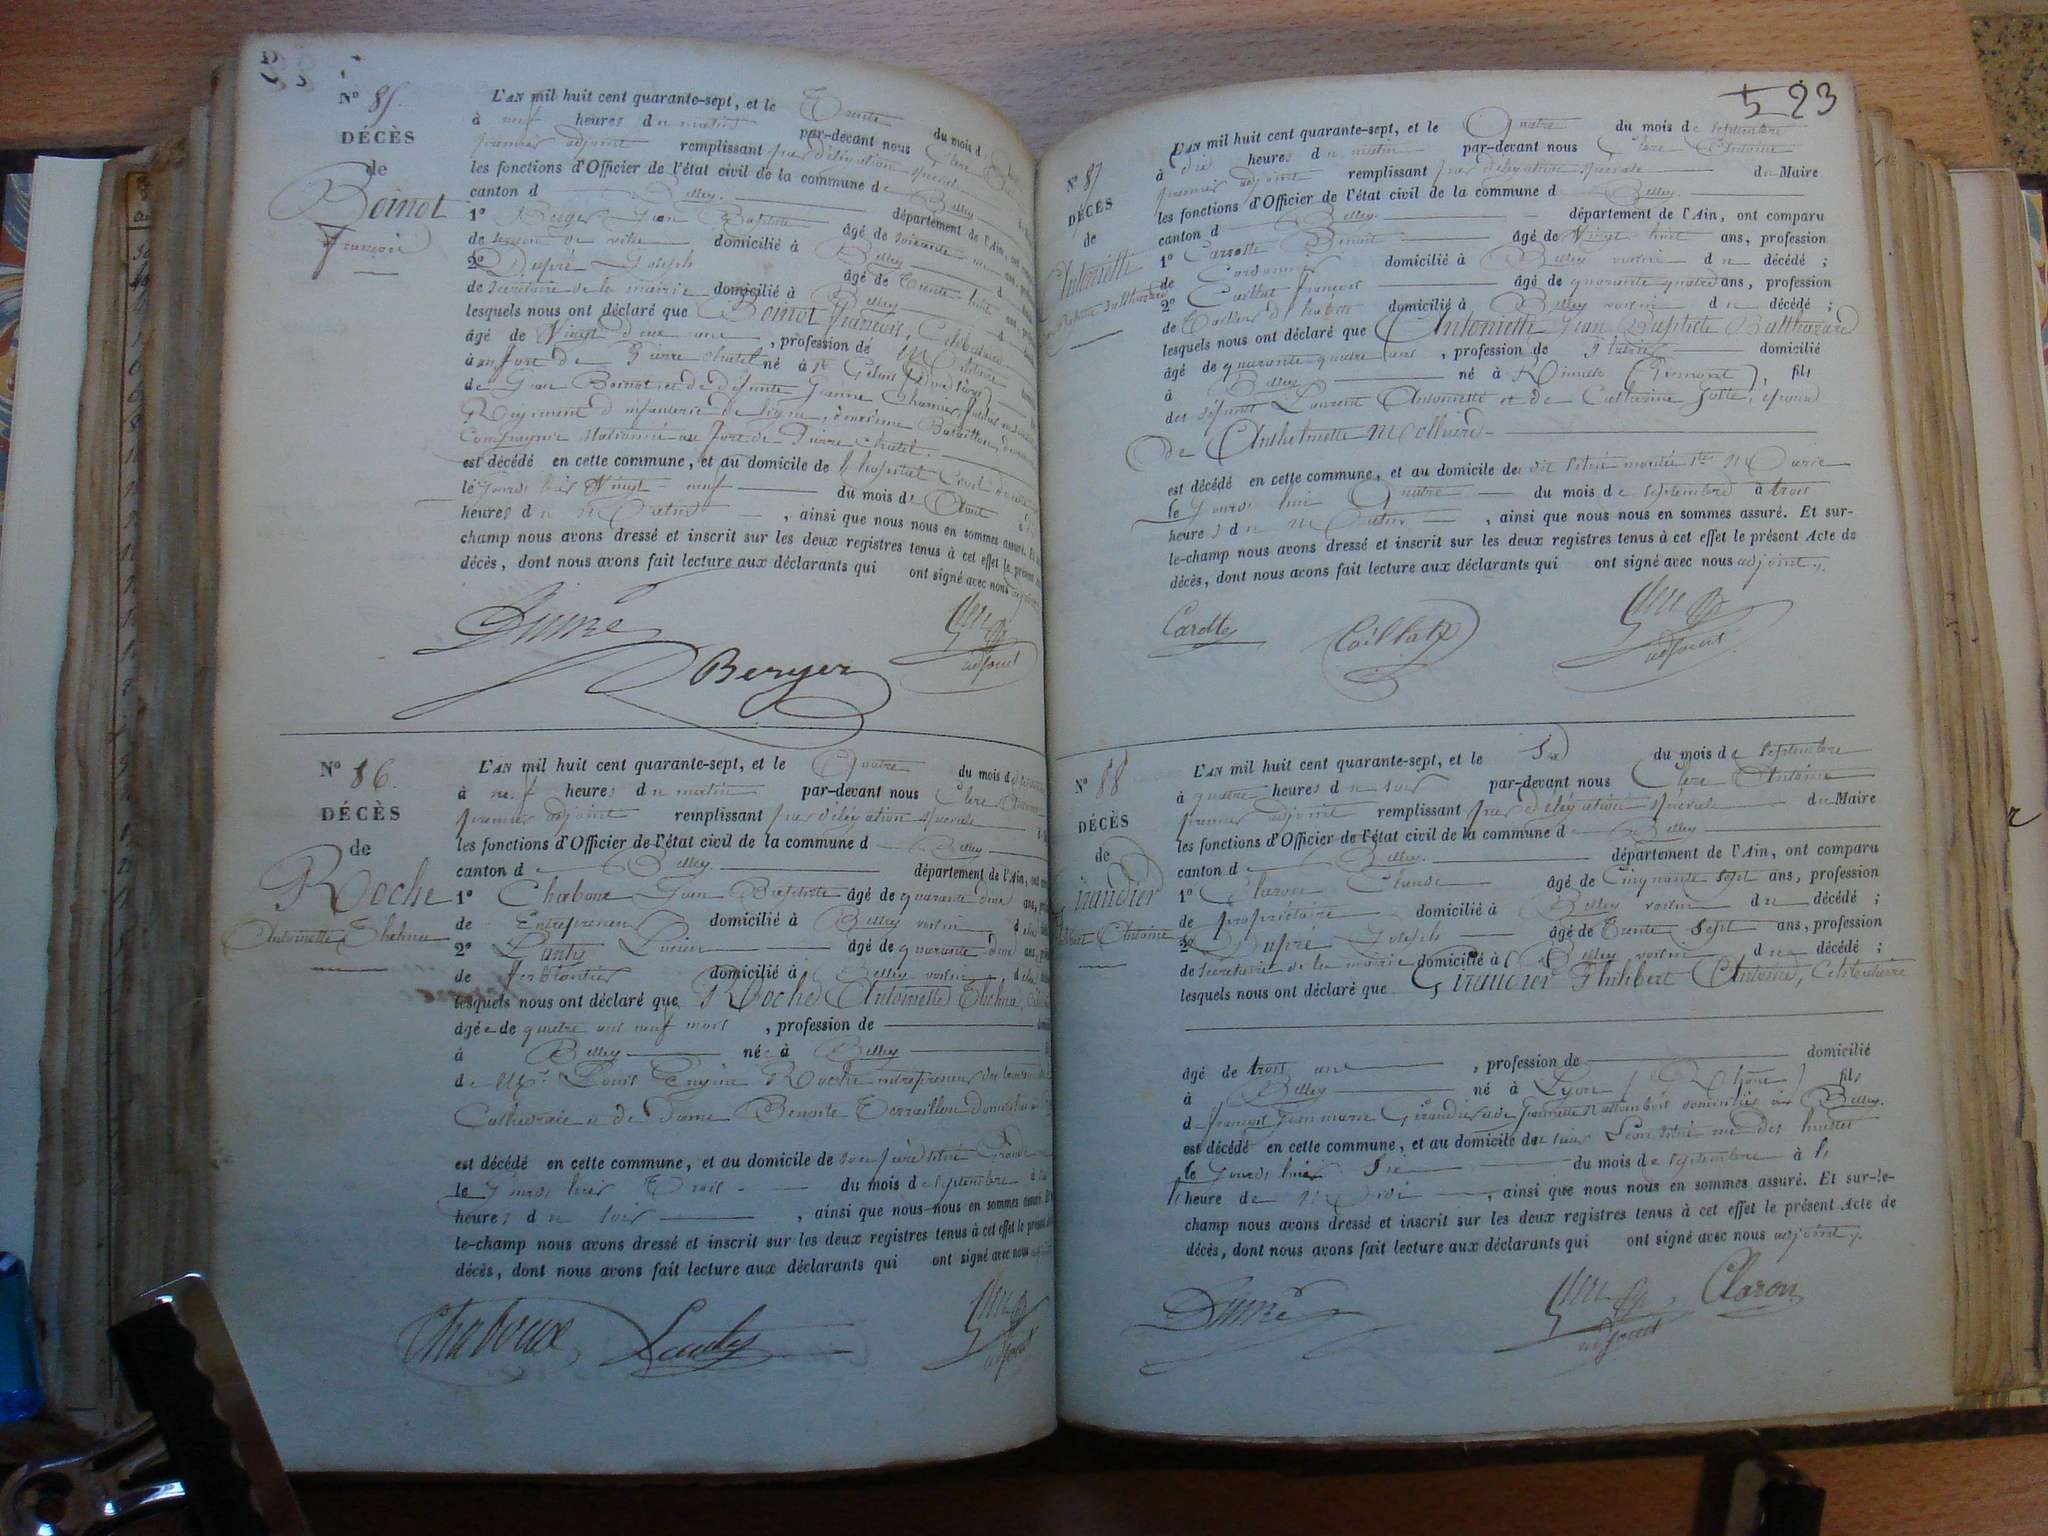 Nº 85.
DÉCÈS
de
Boinot
François
L'AN mil huit cent quarante-sept, et le Trente du mois d
à neuf heures du matin par-devant nous Clerc
premier adjoint remplissant par délégation spéciale
les fonctions d'Officier de l'état civil de la commune de Belley
canton d Belley département de l'Ain, ont
1º Berger Jean Baptiste âgé de soixante
de domicilié à Belley
2º Dupré Joseph âgé de Trente-huit ans
de secrétaire de la mairie domicilié à Belley
lesquels nous ont déclaré que Boinot François, Célibataire
âgé de Vingt deux ans, profession de Militaire
au fort de Pierre Châtel né à St Gelais (Deux Sèvres)
de Jean Boinot et de défunte Jeanne
Régiment d'infanterie de ligne, Bataillon
Compagnie stationné au fort de Pierre Châtel.
est décédé en cette commune, et au domicile de l'hospital Civil
le Vingt-neuf du mois d'Août
heures du Matin, ainsi que nous nous en sommes assuré.
champ nous avons dressé et inscrit sur les deux registres tenus à cet effet le présent
décès, dont nous avons fait lecture aux déclarants qui ont signé avec nous
Dupré
Berger
Clerc
adjoint
Nº 86.
DÉCÈS
de
Roche
Antoinette Ethelna
L'AN mil huit cent quarante-sept, et le Quatre du mois d
à neuf heures du matin par-devant nous Clerc Antoine
premier adjoint remplissant par délégation spéciale
les fonctions d'Officier de l'état civil de la commune d Belley
canton de Belley. département de l'Ain, ont
1º Chaboux Jean Baptiste âgé de quarante deux ans,
de Entrepreneur domicilié à Belley voisin
2º Lanty Lucien âgé de quarante deux ans,
de ferblantier domicilié à Belley voisin
lesquels nous ont déclaré que Roche Antoinette Ethelna
âgée de quatre ans neuf mois, profession de
à Belley née à Belley
de Mr. Louis Eugène Roche entrepreneur des travaux
Cathédrale et de Dame Benoite Terraillon
est décédé en cette commune, et au domicile de son père situé Grande
le Trois du mois de septembre à
heures du soir, ainsi que nous nous en sommes assuré.
le-champ nous avons dressé et inscrit sur les deux registres tenus à cet effet le présent
décès, dont nous avons fait lecture aux déclarants qui ont signé avec nous
Chaboux
Lanty
Clerc
adjoint
523
Nº 87
DÉCÈS
de
Antonietti
Jean Baptiste Balthazard
L'AN mil huit cent quarante-sept, et le Quatre du mois de septembre
à dix heures du matin par-devant nous Clerc Antoine
premier adjoint remplissant par délégation spéciale du Maire
les fonctions d'Officier de l'état civil de la commune d Belley
canton d Belley. département de l'Ain, ont comparu
1º Carotte Benoit âgé de Vingt huit ans, profession
de Cordonnier domicilié à Belley voisin du décédé;
2º Caillat François âgé de quarante quatre ans, profession
de Tailleur d'habits domicilié à Belley voisin du décédé;
lesquels nous ont déclaré que Antonietti Jean Baptiste Balthazard
âgé de quarante quatre ans, profession de Plâtrier domicilié
à Belley né à (Piémont), fils
des défunts Laurent Antonietti et de Catherine époux
de Anthelmette Mollard
est décédé en cette commune, et au domicile de
le jourd'hui Quatre du mois de septembre à trois
heures du Matin, ainsi que nous nous en sommes assuré. Et sur-
le-champ nous avons dressé et inscrit sur les deux registres tenus à cet effet le présent Acte de
décès, dont nous avons fait lecture aux déclarants qui ont signé avec nous adjoint.
Carotte
Caillat
Clerc
adjoint
Nº 88
DÉCÈS
de
Giraudier
Philibert Antoine
L'AN mil huit cent quarante-sept, et le Six du mois de septembre
à quatre heures du soir par-devant nous Clerc Antoine
premier adjoint remplissant par délégation spéciale du Maire
les fonctions d'Officier de l'état civil de la commune d Belley
canton de Belley. département de l'Ain, ont comparu
1º Claron Claude âgé de Cinquante sept ans, profession
de propriétaire domicilié à Belley voisin du décédé;
2º Dupré Joseph âgé de Trente sept ans, profession
de secrétaire de la mairie domicilié à Belley voisin du décédé;
lesquels nous ont déclaré que Giraudier Philibert Antoine, Célibataire
âgé de trois ans, profession de domicilié
à Belley né à Lyon (Rhône) fils
d François Jean Marie Giraudier et de Jeannette domiciliés à Belley.
est décédé en cette commune, et au domicile du sieur situé rue des
le jourd'hui Six du mois de septembre à
heure de Midi, ainsi que nous nous en sommes assuré. Et sur-le-
champ nous avons dressé et inscrit sur les deux registres tenus à cet effet le présent Acte de
décès, dont nous avons fait lecture aux déclarants qui ont signé avec nous adjoint.
Dupré
Clerc
adjoint
Claron